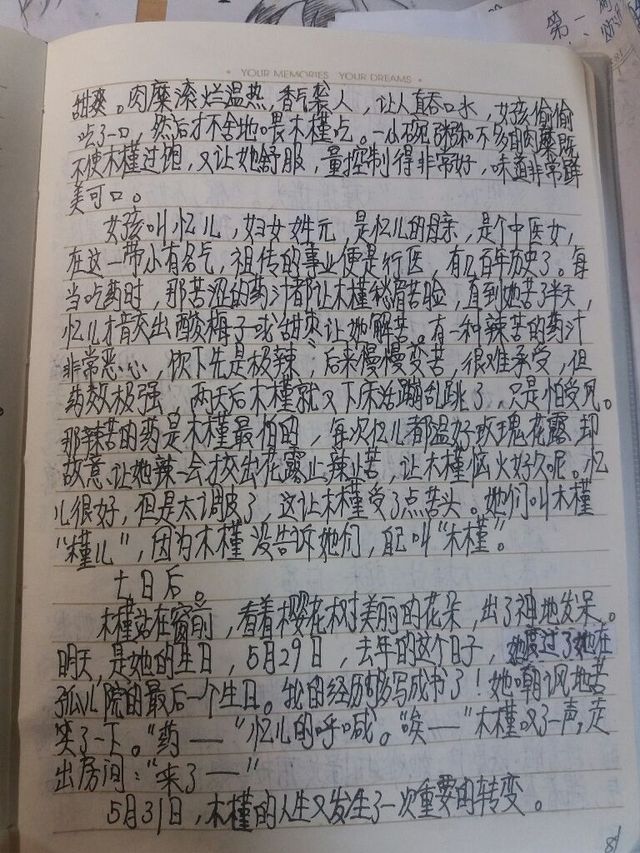 YOUR MEMORIES YOUR DREAMS
甜爽。肉糜滚烂温热,香气袭人,让人直吞口水,女孩偷偷
吃了一口,然后才不舍地喂木槿吃。一小碗粥和不多的肉糜既
不使木槿过饱,又让她舒服,量控制得非常好,味道非常鲜
美可口。
女孩叫忆儿,妇女姓元,是忆儿的母亲,是个中医女,
在这一带小有名气,祖传的事业便是行医,有几百年历史了。每
当吃药时,那苦涩的药汁都让木槿愁眉苦脸,直到她苦了半天,
忆儿才肯交出酸梅子或甜枣让她解苦。有一种辣苦的药汁
非常恶心,饮下先是极辣,后来慢慢变苦,很难承受,但
药效极强,两天后木槿就又下床活蹦乱跳了,只是怕受风。
那辣苦的药是木槿最怕的,每次忆儿都温好玫瑰花露,却
故意让她辣一会才交出花露止辣止苦,让木槿恼火好久呢。忆
儿很好,但是太调皮了,这让木槿受了点苦头。她们叫木槿
“槿儿”,因为木槿没告诉她们,自己叫“木槿”。
七日后。
木槿站在窗前,看着樱花树美丽的花朵,出了神地发呆。
明天,是她的生日,5月29日,去年的这个日子,她度过了她在
孤儿院的最后一个生日。我的经历够写成书了!她嘲讽地苦
笑了一下。“药——”忆儿的呼喊。“唉——”木槿叹了一声,走
出房间:“来了——”
5月31日,木槿的人生又发生了一次重要的转变。
81